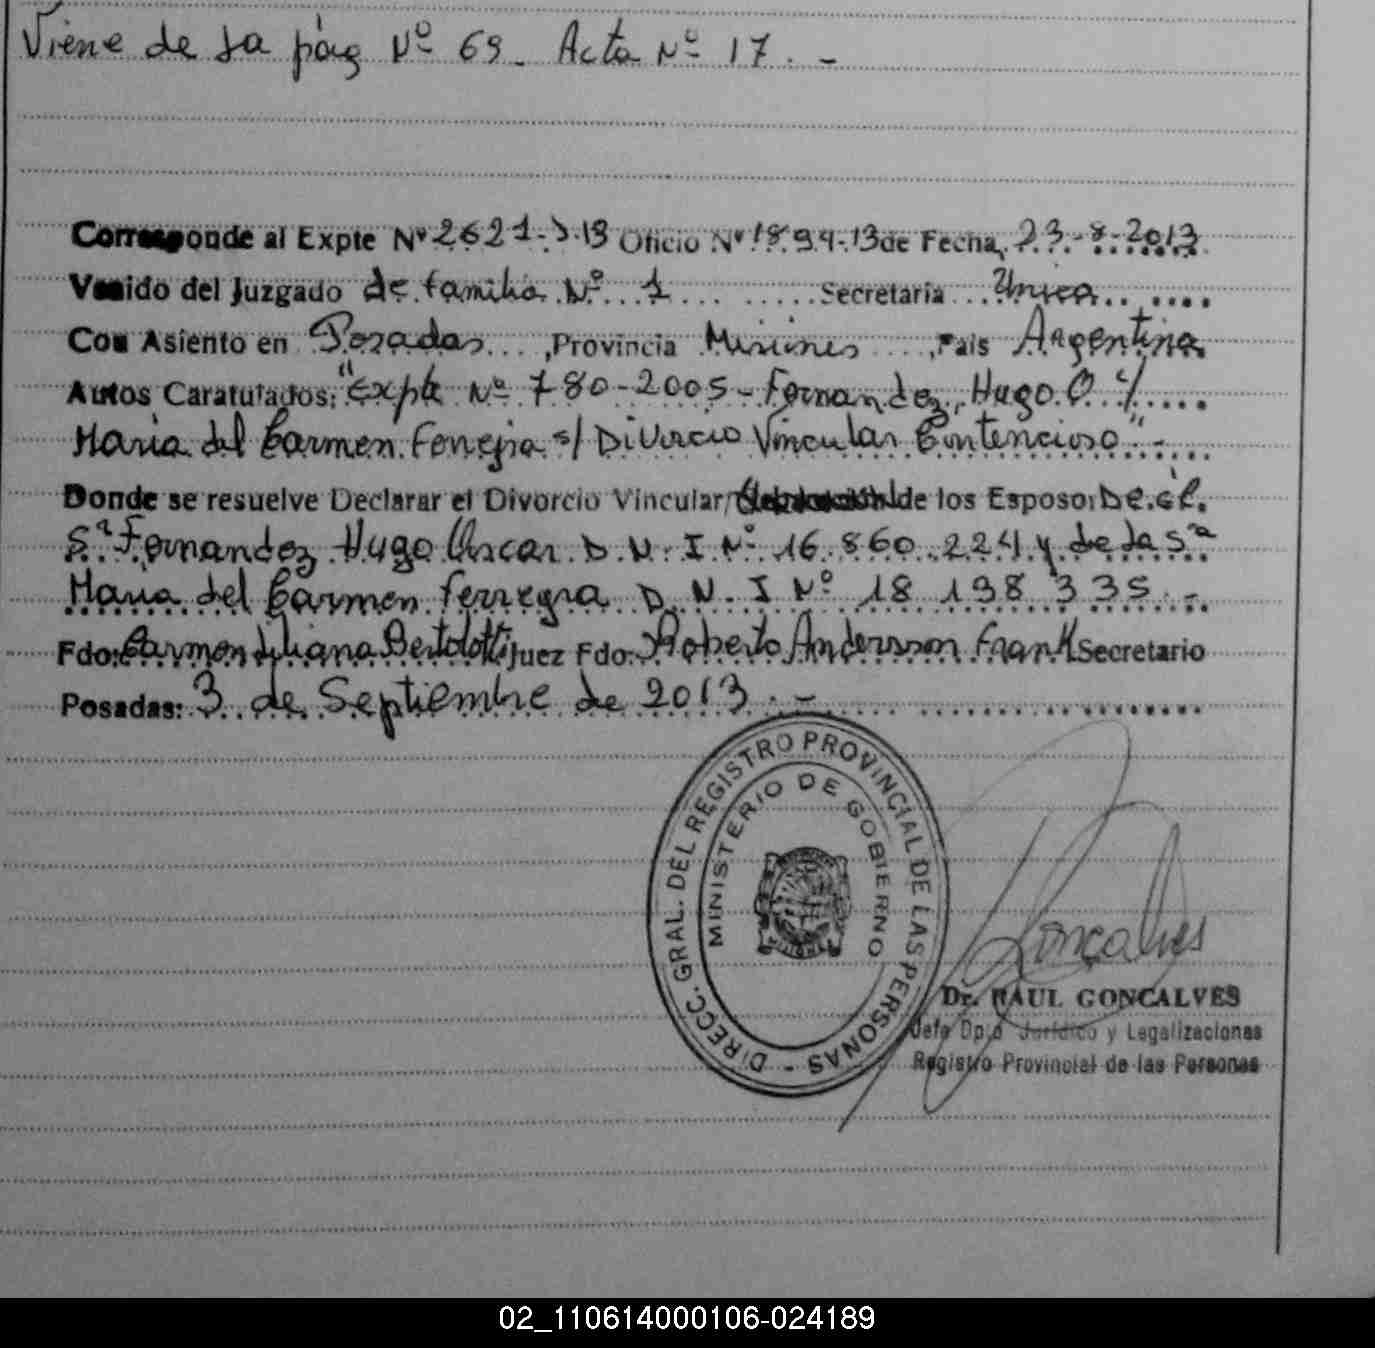 Viene de la pág Nº 69. Acta Nº 17. -
Corresponde al Expte Nº 2621- Oficio Nº 1894-13 de Fecha, 23-8-2013
Venido del Juzgado de familia Nº 1 Secretaria Unica
Con Asiento en Posadas, Provincia Misiones, Pais Argentina
Autos Caratulados: "Expte Nº 780-2005- Fernandez, Hugo O c/
Maria del Carmen Ferreyra s/ Divorcio Vincular Contencioso" -
Donde se resuelve Declarar el Divorcio Vincular/ de los Esposo: De el
Sr Fernandez Hugo Oscar D.N.I Nº 16.860.224 y de la Sra
Maria del Carmen Ferreyra D.N.I Nº 18 198 335. -
Fdo: Carmen Liliana Bertolotti Juez Fdo: Roberto Andersson Frank Secretario
Posadas: 3 de Septiembre de 2013. -
DIRECC. GRAL. DEL REGISTRO PROVINCIAL DE LAS PERSONAS -
MINISTERIO DE GOBIERNO
Goncalves
Dr. RAUL GONCALVES
Jefe Dpto Jurídico y Legalizaciones
Registro Provincial de las Personas
02_110614000106-024189